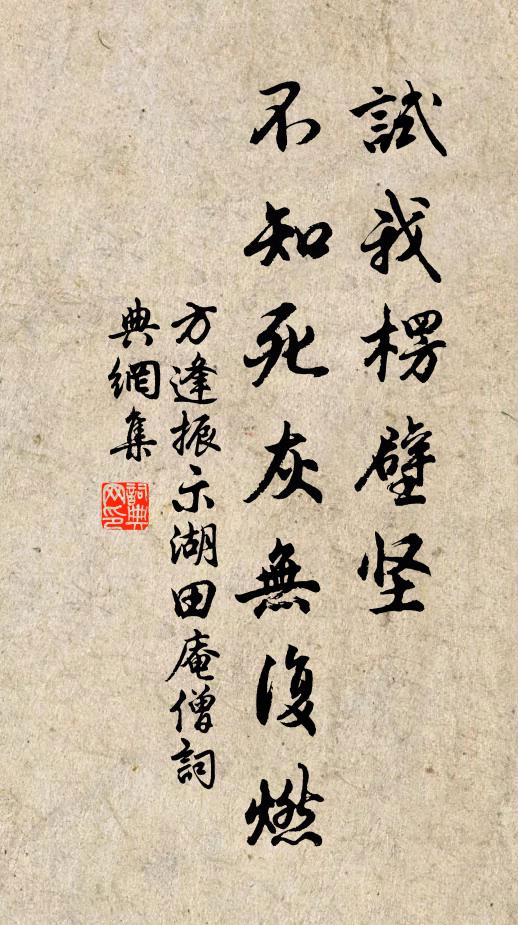 試我楞壁坚
不知死灰無復燃
方逢振示湖田庵僧詞
典網集
詞典
网印